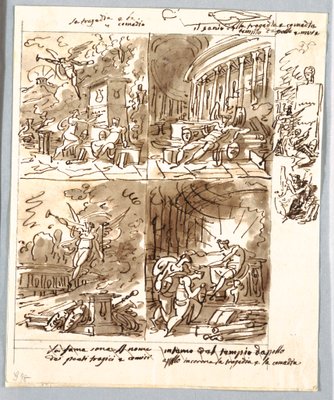 la tragedia e la
comedia
il genio della tragedia e comedia
tempio d'apollo e muse
la fama sona il nome
dei poeti tragici e comici
intorno al tempio d'apollo
apollo incorona la tragedia e la comedia